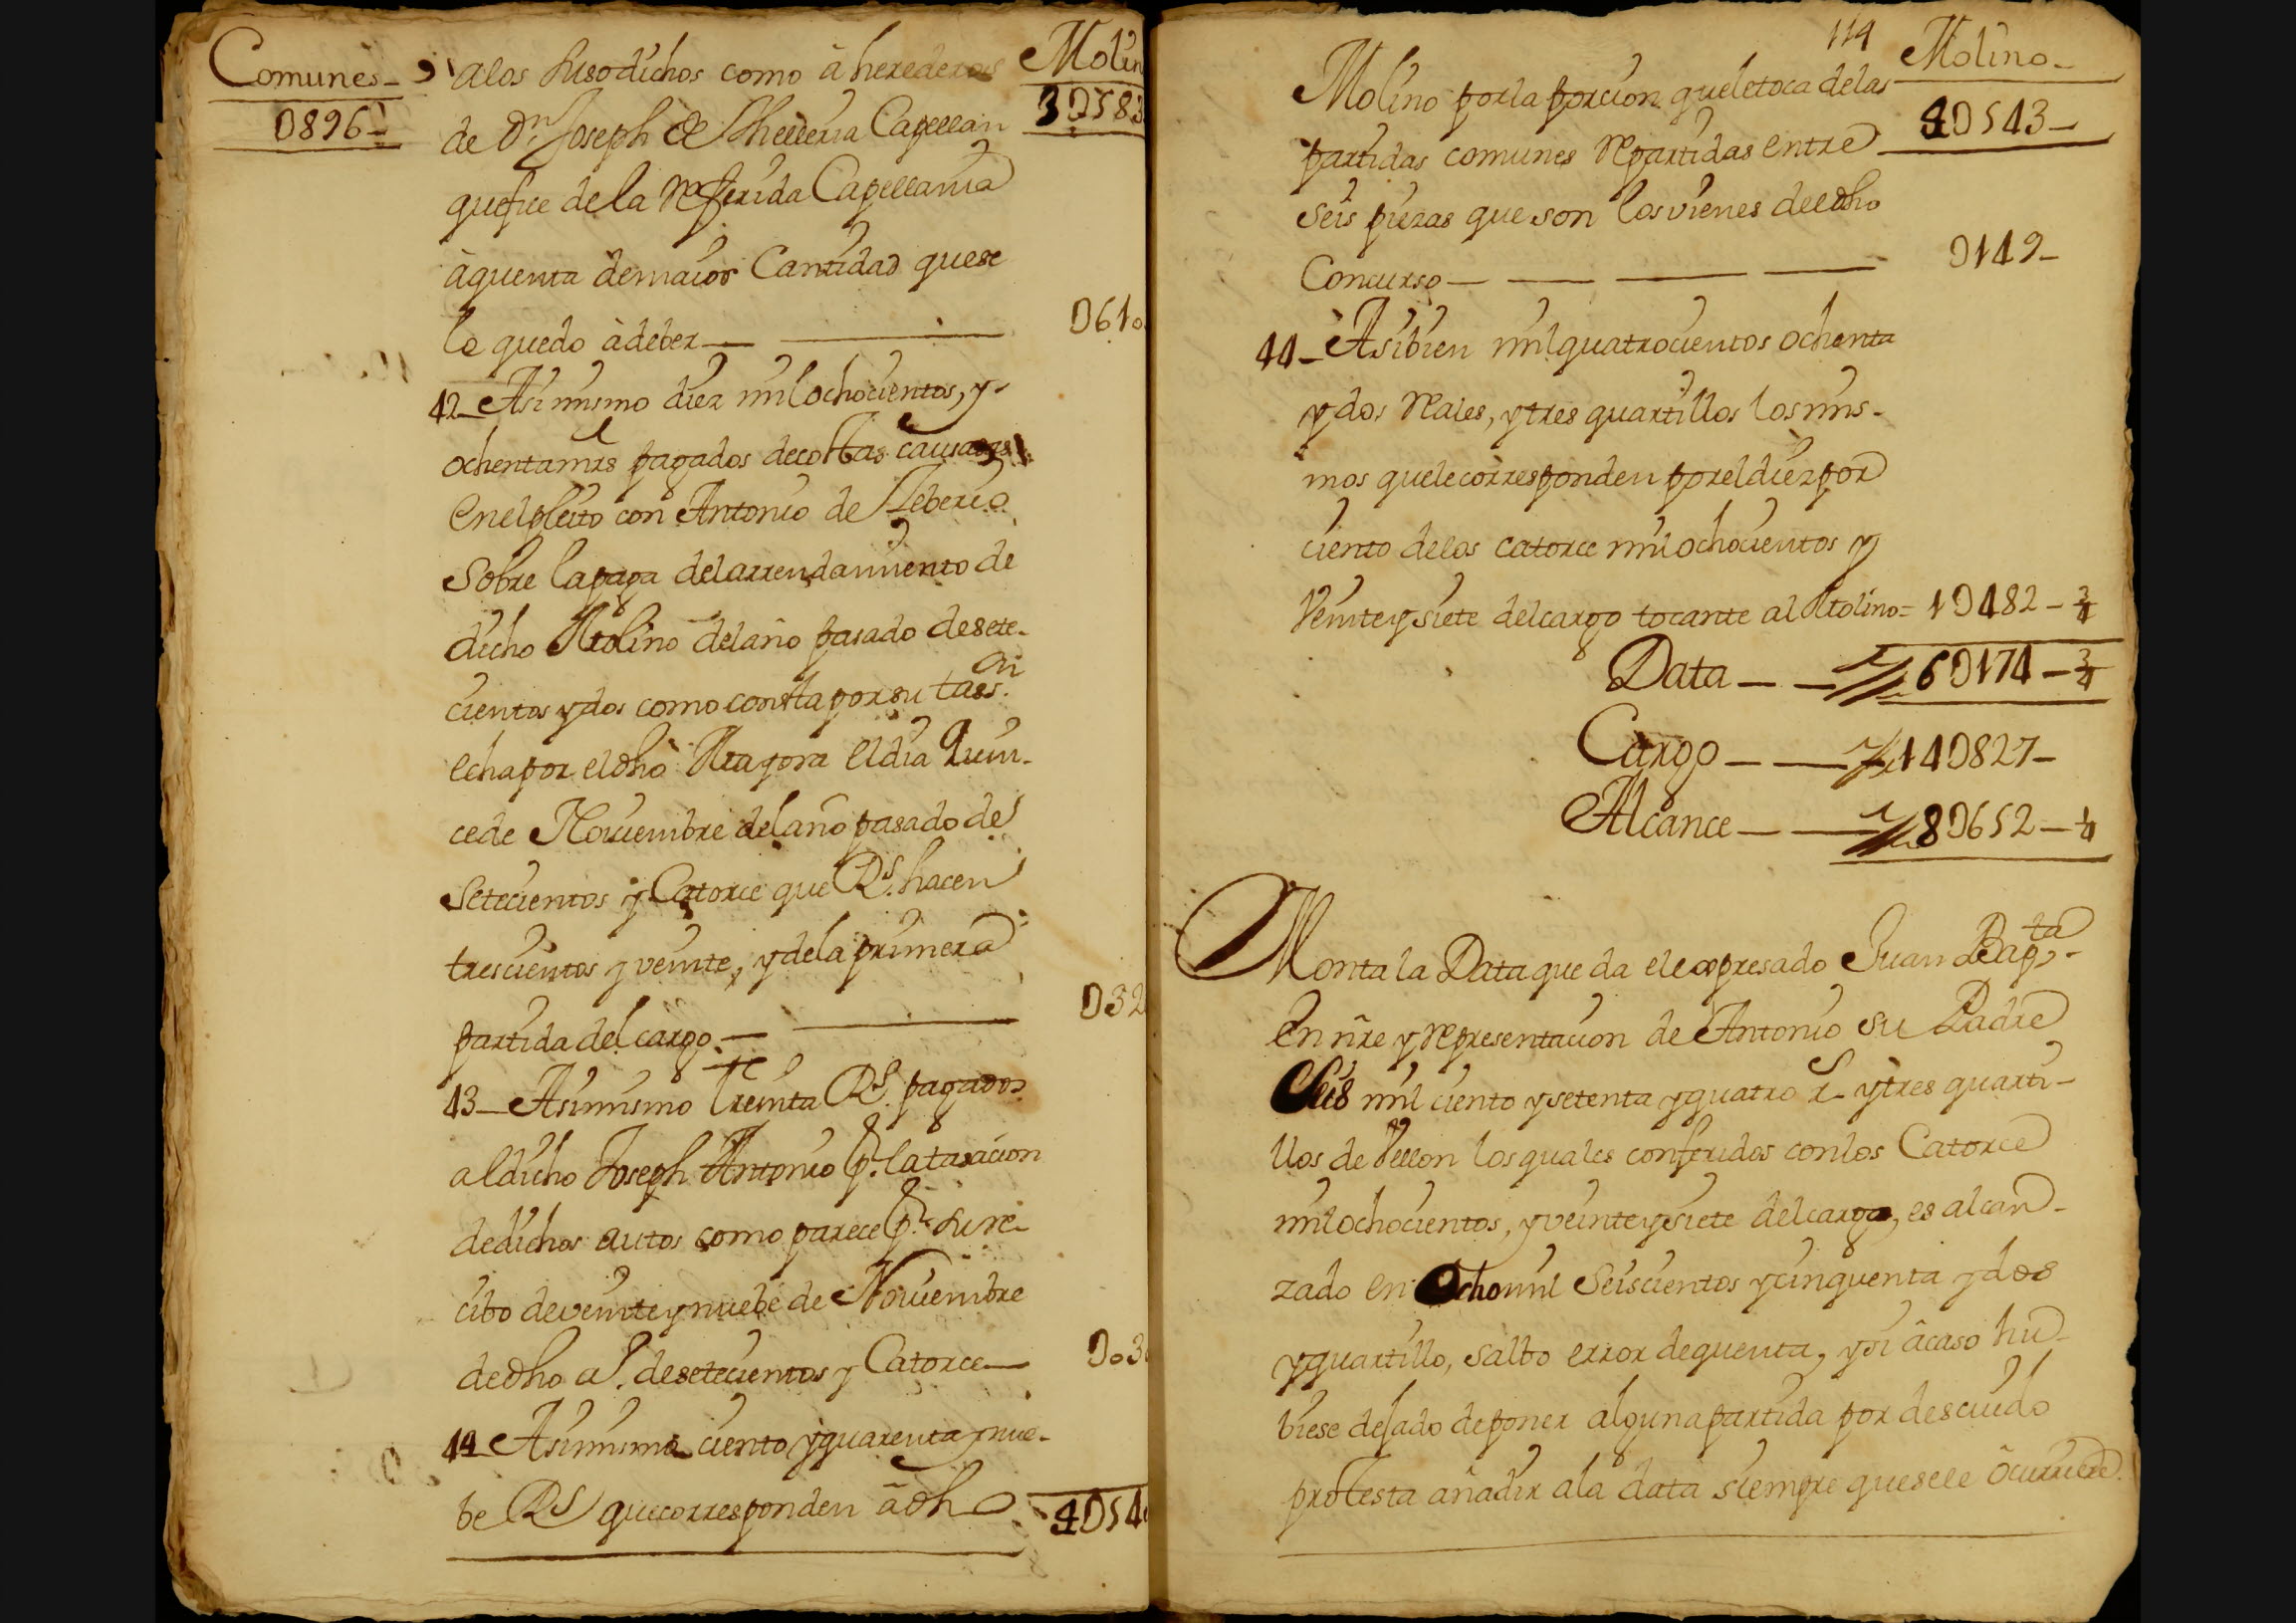 Comunes-
D896-
Molin
3D583
a los susodichos como à herederos
de Dn. Joseph de Capellan
que fue de la Referida Capellania
à quenta de maior Cantidad que se
le quedo à deber—
D610
42- Asimismo diez mil ochocientos, y
ochenta mrs pagados de costas causadas
en el pleito con Antonio de
Sobre la paga del arrendamiento de
dicho Molino del año pasado de sete-
cientos y dos como consta por su tass.on
echa por el dho Mayora el dia Quin-
ce de Noviembre del año pasado de
Setecientos y Catorce que Rs. hacen
trescientos y veinte, y de la primera
partida del cargo—
D32
43- Asimismo treinta Rs. pagados
al dicho Joseph Antonio pr. la tasacion
de dichos autos como parece pr. su re-
cibo de veinte y nuebe de Noviembre
de dho a.o de setecientos y Catorce—
Do3
44- Asimismo ciento y quarenta y nue-
be Rs que corresponden à dho
4D54
114
Molino-
4D543-
Molino por la porcion que le toca de las
partidas comunes Repartidas entre
seis piezas que son los vienes de el dho
Concurso—
D149-
44- Asibien mil quatrocientos ochenta
y dos Reales, y tres quartillos los mis-
mos que le corresponden por el diez por
ciento de los catorce mil ochocientos y
Veinte y siete del cargo tocante al Molino= 1D482- 3/4
Data— — 6D174- 3/4
Cargo— — 14D827-
Alcance— — 8D652- 1/4
Monta la Data que da el expresado Juan Bapta.
En nre y representacion de Antonio su Padre
Seis mil ciento y setenta y quatro rs. y tres quarti-
llos de Vellon los quales conferidos con los Catorce
mil ochocientos, y veinte y siete del cargo, es alcan-
zado en Ocho mil Seiscientos y cinquenta y dos
y quartillo, salbo error de quenta, y si àcaso hu-
biese dejado de poner alguna partida por descuido
protesta añadir a la data siempre que se le òcurriere.